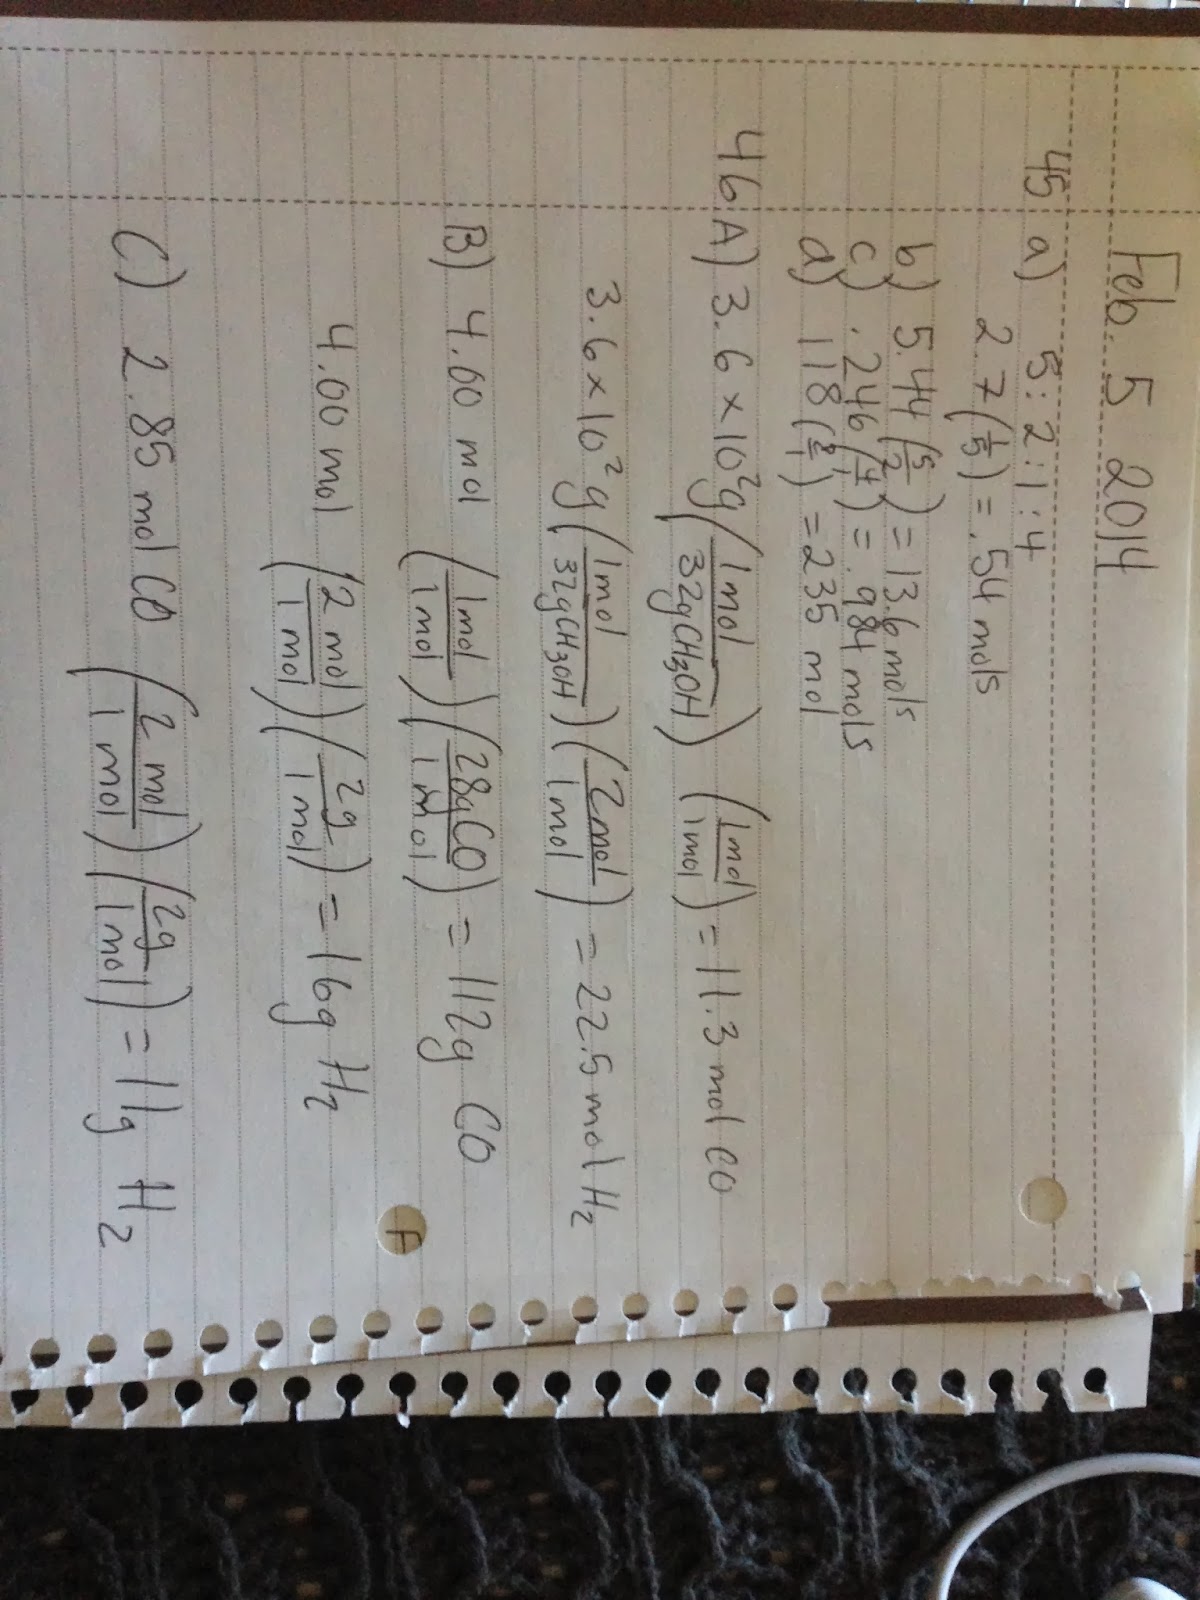 Feb. 5 2014
45 a) 5:2:1:4
2.7(1/5) = .54 mols
b) 5.44(5/2) = 13.6 mols
c) .246(4/1) = .984 mols
d) 118(2/1) = 235 mol
46 A) 3.6 x 10²g (1mol/32gCH₃OH) (1mol/1mol) = 11.3 mol CO
3.6 x 10²g (1mol/32gCH₃OH) (2mol/1mol) = 22.5 mol H₂
B) 4.00 mol (1mol/1mol) (28gCO/1mol) = 112g CO
4.00 mol (2mol/1mol) (2g/1mol) = 16g H₂
C) 2.85 mol CO (2mol/1mol) (2g/1mol) = 11g H₂